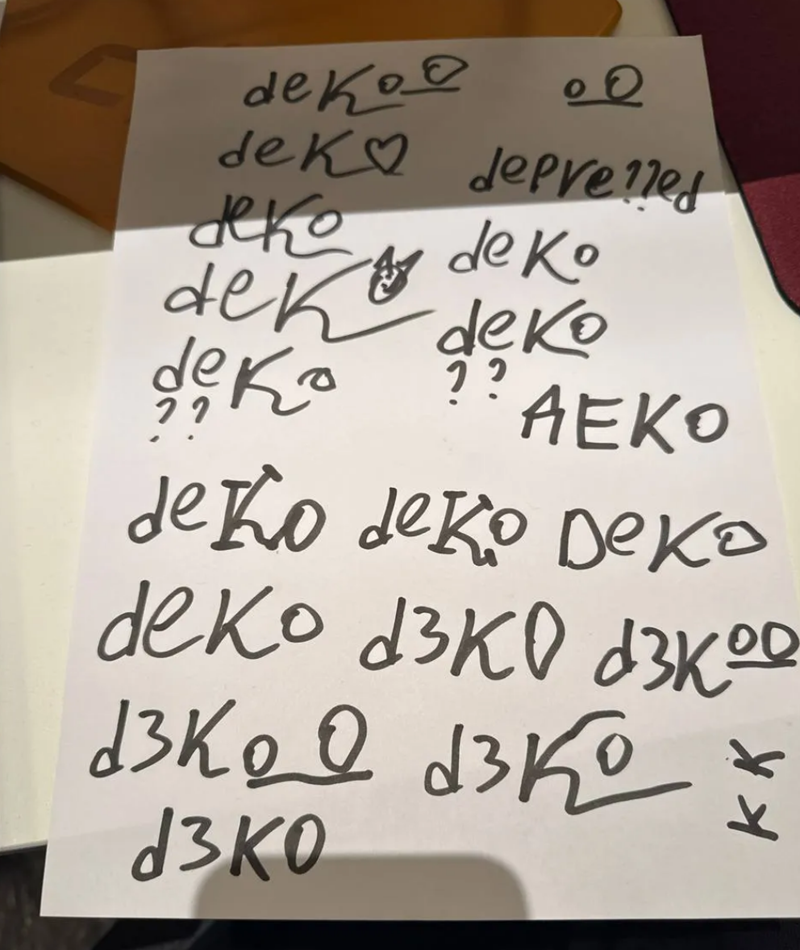 deKoO oO
deK♡ depre??ed
deKo deKo
deK
deKo deKo
?? ??
AEKO
deKo deKo DeKo
deKo d3KO d3KOO
d3KoO d3Ko KK
d3KO